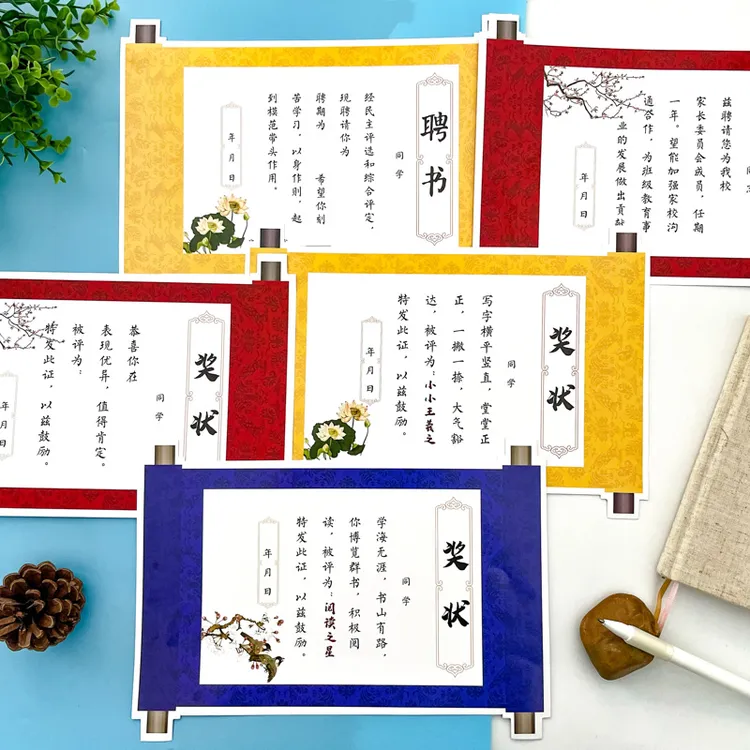 聘书
同学
经民主评选和综合评定，
现聘请你为
聘期为 希望你刻
苦学习，以身作则，起
到模范带头作用。
年月日
兹聘请您为我校
家长委员会成员，任期
一年。望能加强家校沟
通合作，为班级教育事
业的发展做出贡献
年月日
奖状
同学
恭喜你在
表现优异，值得肯定。
被评为：
特发此证，以兹鼓励。
年月日
奖状
同学
写字横平竖直，堂堂正
正，一撇一捺，大气豁
达，被评为：小小王羲之
特发此证，以兹鼓励。
年月日
奖状
同学
学海无涯，书山有路，
你博览群书，积极阅
读，被评为：阅读之星
特发此证，以兹鼓励。
年月日